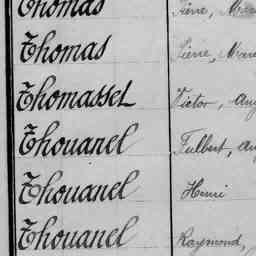 Thomas Pierre, Mar
Thomas Pierre, Mar
Thomasset Victor, Aug
Thouanel Fulbert, au
Thouanel Henri
Thouanel Raymond,